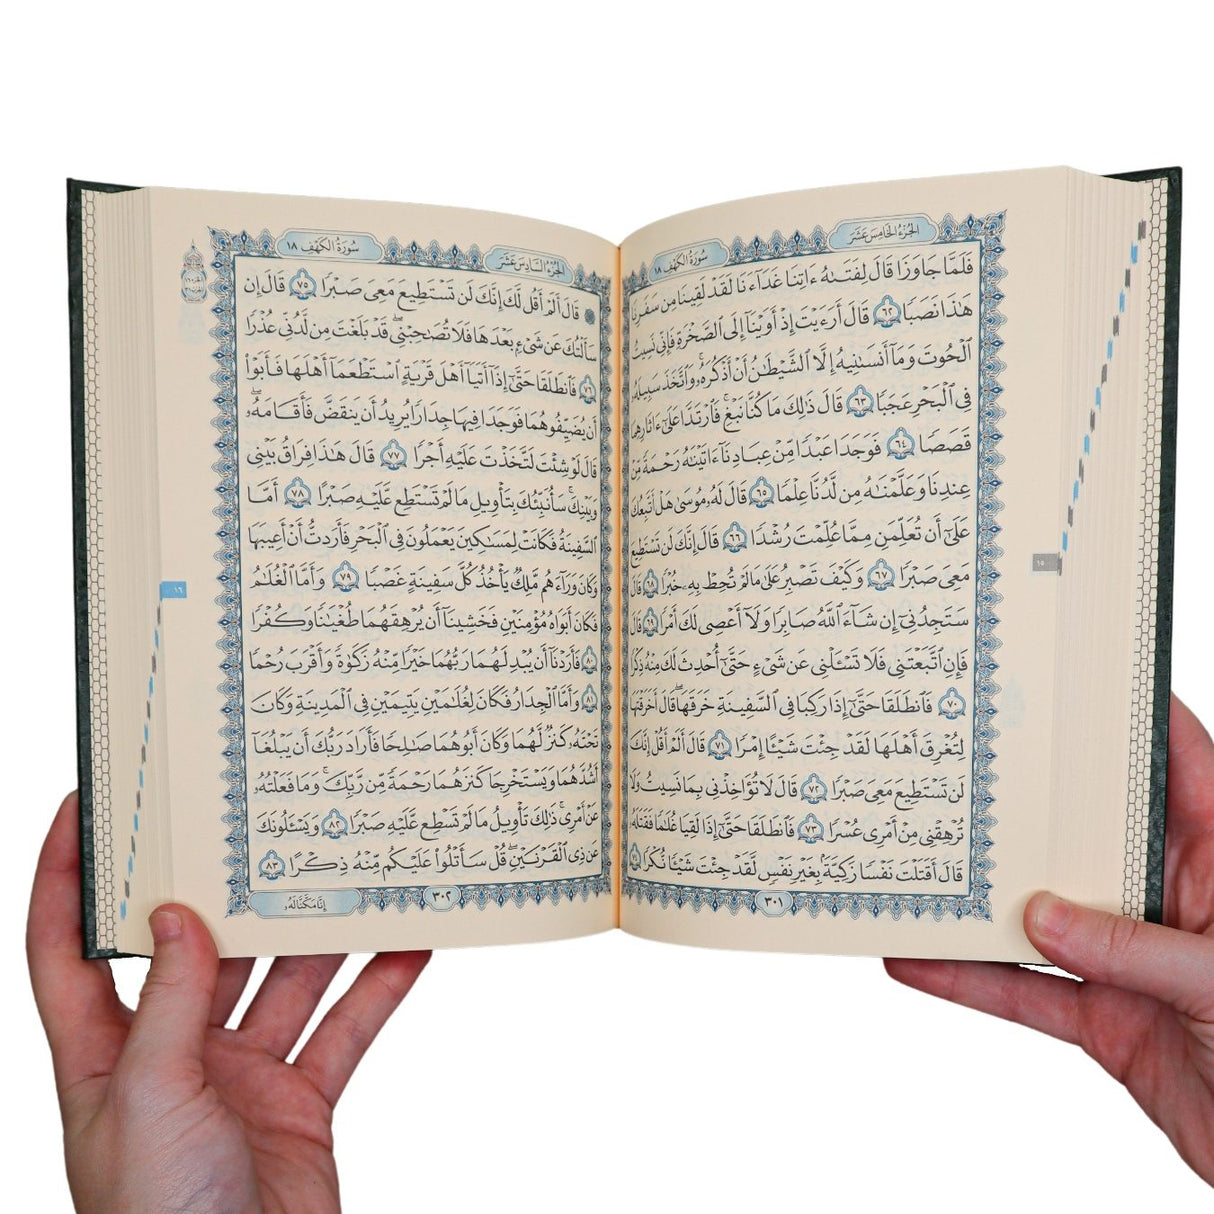 الجُزْءُ الخَامِسَ عَشَرَ
سُورَةُ الكَهْفِ ١٨
فَلَمَّا جَاوَزَا قَالَ لِفَتَىٰهُ ءَاتِنَا غَدَآءَنَا لَقَدْ لَقِينَا مِن سَفَرِنَا
هَٰذَا نَصَبًا ٦٢ قَالَ أَرَءَيْتَ إِذْ أَوَيْنَآ إِلَى ٱلصَّخْرَةِ فَإِنِّي نَسِيتُ
ٱلْحُوتَ وَمَآ أَنسَىٰنِيهُ إِلَّا ٱلشَّيْطَٰنُ أَنْ أَذْكُرَهُۥۚ وَٱتَّخَذَ سَبِيلَهُۥ
فِي ٱلْبَحْرِ عَجَبًا ٦٣ قَالَ ذَٰلِكَ مَا كُنَّا نَبْغِۚ فَٱرْتَدَّا عَلَىٰٓ ءَاثَارِهِمَا
قَصَصًا ٦٤ فَوَجَدَا عَبْدًا مِّنْ عِبَادِنَآ ءَاتَيْنَٰهُ رَحْمَةً مِّنْ
عِندِنَا وَعَلَّمْنَٰهُ مِن لَّدُنَّا عِلْمًا ٦٥ قَالَ لَهُۥ مُوسَىٰ هَلْ أَتَّبِعُكَ
عَلَىٰٓ أَن تُعَلِّمَنِ مِمَّا عُلِّمْتَ رُشْدًا ٦٦ قَالَ إِنَّكَ لَن تَسْتَطِيعَ
مَعِيَ صَبْرًا ٦٧ وَكَيْفَ تَصْبِرُ عَلَىٰ مَا لَمْ تُحِطْ بِهِۦ خُبْرًا ٦٨ قَالَ
سَتَجِدُنِيٓ إِن شَآءَ ٱللَّهُ صَابِرًا وَلَآ أَعْصِي لَكَ أَمْرًا ٦٩ قَالَ
فَإِنِ ٱتَّبَعْتَنِي فَلَا تَسْـَٔلْنِي عَن شَيْءٍ حَتَّىٰٓ أُحْدِثَ لَكَ مِنْهُ ذِكْرًا
٧٠ فَٱنطَلَقَا حَتَّىٰٓ إِذَا رَكِبَا فِي ٱلسَّفِينَةِ خَرَقَهَاۖ قَالَ أَخَرَقْتَهَا
لِتُغْرِقَ أَهْلَهَا لَقَدْ جِئْتَ شَيْـًٔا إِمْرًا ٧١ قَالَ أَلَمْ أَقُلْ إِنَّكَ
لَن تَسْتَطِيعَ مَعِيَ صَبْرًا ٧٢ قَالَ لَا تُؤَاخِذْنِي بِمَا نَسِيتُ وَلَا
تُرْهِقْنِي مِنْ أَمْرِي عُسْرًا ٧٣ فَٱنطَلَقَا حَتَّىٰٓ إِذَا لَقِيَا غُلَٰمًا فَقَتَلَهُۥ
قَالَ أَقَتَلْتَ نَفْسًا زَكِيَّةًۢ بِغَيْرِ نَفْسٍ لَّقَدْ جِئْتَ شَيْـًٔا نُّكْرًا ٧٤
٣٠١
١٥
الجُزْءُ السَّادِسَ عَشَرَ
سُورَةُ الكَهْفِ ١٨
۞ قَالَ أَلَمْ أَقُل لَّكَ إِنَّكَ لَن تَسْتَطِيعَ مَعِيَ صَبْرًا ٧٥ قَالَ إِن
سَأَلْتُكَ عَن شَيْءٍۭ بَعْدَهَا فَلَا تُصَٰحِبْنِيۖ قَدْ بَلَغْتَ مِن لَّدُنِّي عُذْرًا
٧٦ فَٱنطَلَقَا حَتَّىٰٓ إِذَآ أَتَيَآ أَهْلَ قَرْيَةٍ ٱسْتَطْعَمَآ أَهْلَهَا فَأَبَوْا۟
أَن يُضَيِّفُوهُمَا فَوَجَدَا فِيهَا جِدَارًا يُرِيدُ أَن يَنقَضَّ فَأَقَامَهُۥۖ
قَالَ لَوْ شِئْتَ لَتَّخَذْتَ عَلَيْهِ أَجْرًا ٧٧ قَالَ هَٰذَا فِرَاقُ بَيْنِي
وَبَيْنِكَۚ سَأُنَبِّئُكَ بِتَأْوِيلِ مَا لَمْ تَسْتَطِع عَّلَيْهِ صَبْرًا ٧٨ أَمَّا
ٱلسَّفِينَةُ فَكَانَتْ لِمَسَٰكِينَ يَعْمَلُونَ فِي ٱلْبَحْرِ فَأَرَدتُّ أَنْ أَعِيبَهَا
وَكَانَ وَرَآءَهُم مَّلِكٌ يَأْخُذُ كُلَّ سَفِينَةٍ غَصْبًا ٧٩ وَأَمَّا ٱلْغُلَٰمُ
فَكَانَ أَبَوَاهُ مُؤْمِنَيْنِ فَخَشِينَآ أَن يُرْهِقَهُمَا طُغْيَٰنًا وَكُفْرًا
٨٠ فَأَرَدْنَآ أَن يُبْدِلَهُمَا رَبُّهُمَا خَيْرًا مِّنْهُ زَكَوٰةً وَأَقْرَبَ رُحْمًا
٨١ وَأَمَّا ٱلْجِدَارُ فَكَانَ لِغُلَٰمَيْنِ يَتِيمَيْنِ فِي ٱلْمَدِينَةِ وَكَانَ
تَحْتَهُۥ كَنزٌ لَّهُمَا وَكَانَ أَبُوهُمَا صَٰلِحًا فَأَرَادَ رَبُّكَ أَن يَبْلُغَآ
أَشُدَّهُمَا وَيَسْتَخْرِجَا كَنزَهُمَا رَحْمَةً مِّن رَّبِّكَۚ وَمَا فَعَلْتُهُۥ
عَنْ أَمْرِيۚ ذَٰلِكَ تَأْوِيلُ مَا لَمْ تَسْطِع عَّلَيْهِ صَبْرًا ٨٢ وَيَسْـَٔلُونَكَ
عَن ذِي ٱلْقَرْنَيْنِۖ قُلْ سَأَتْلُوا۟ عَلَيْكُم مِّنْهُ ذِكْرًا ٨٣
٣٠٢
إِنَّا مَكَّنَّا لَهُۥ
١٦